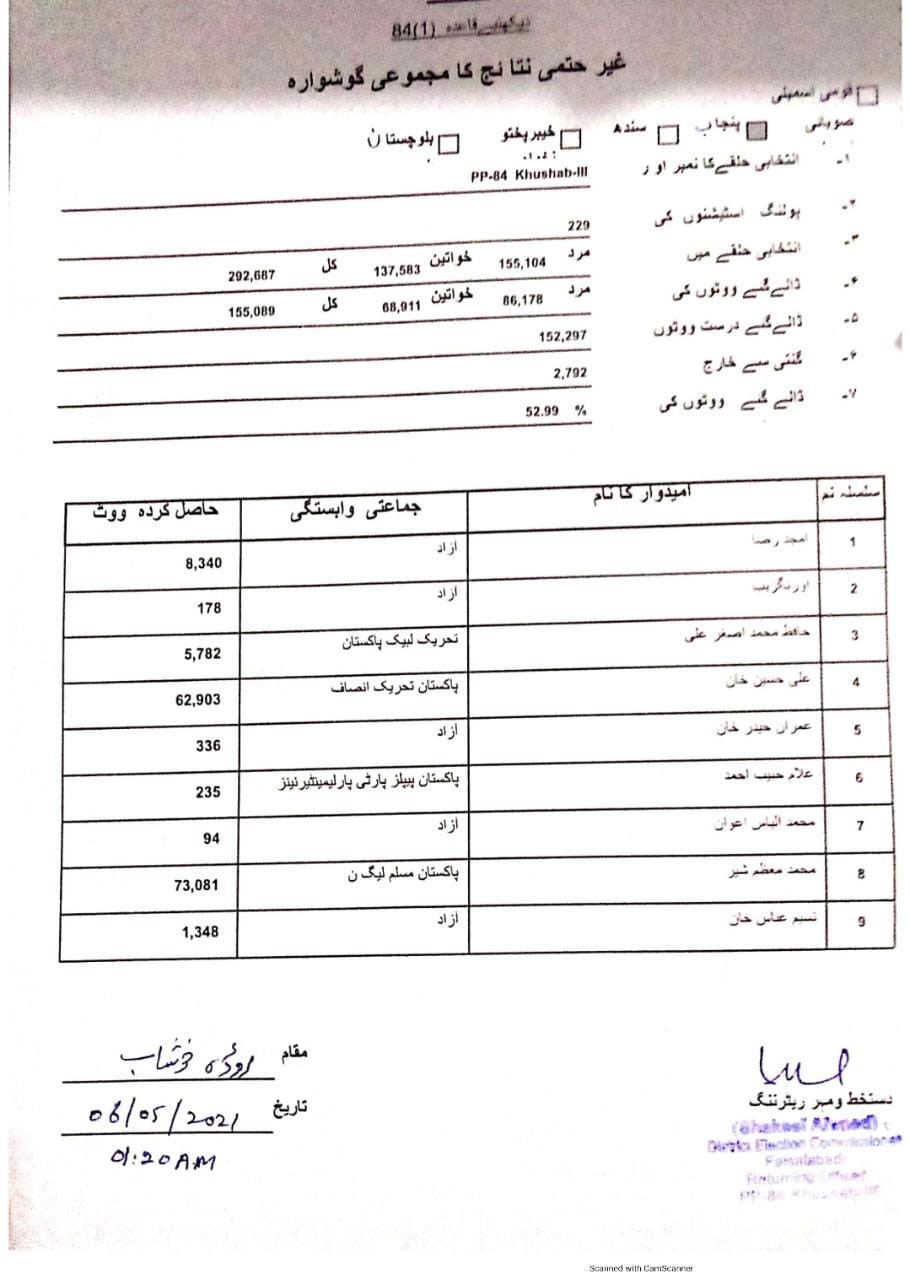 دیکھئیے قاعدہ 84(1)
غیر حتمی نتائج کا مجموعی گوشوارہ
قومی اسمبلی
صوبائی پنجاب سندھ خیبر پختو بلوچستان
۱۔ انتخابی حلقے کا نمبر اور PP-84 Khushab-III
۲۔ پولنگ اسٹیشنوں کی 229
۳۔ انتخابی حلقے میں مرد 155,104 خواتین 137,583 کل 292,687
۴۔ ڈالے گئیے ووٹوں کی مرد 86,178 خواتین 68,911 کل 155,089
۵۔ ڈالے گئیے درست ووٹوں 152,297
۶۔ گنتی سے خارج 2,792
۷۔ ڈالے گئیے ووٹوں کی 52.99 %
سلسلہ نم امیدوار کا نام جماعتی وابستگی حاصل کردہ ووٹ
1 امجد رضا آزاد 8,340
2 اورنگزیب آزاد 178
3 حافظ محمد اصغر علی تحریک لبیک پاکستان 5,782
4 علی حسین خان پاکستان تحریک انصاف 62,903
5 عمران حیدر خان آزاد 336
6 غلام حبیب احمد پاکستان پیپلز پارٹی پارلیمینٹیرینز 235
7 محمد الیاس اعوان آزاد 94
8 محمد معظم شیر پاکستان مسلم لیگ ن 73,081
9 نسیم عباس خان آزاد 1,348
مقام خوشاب
تاریخ 06/05/2021
01:20 AM
دستخط ومہر ریٹرننگ
(Shakeel Ahmed)
District Election Commissioner
Faisalabad
Returning Officer
PP-84 Khushab-III
Scanned with CamScanner